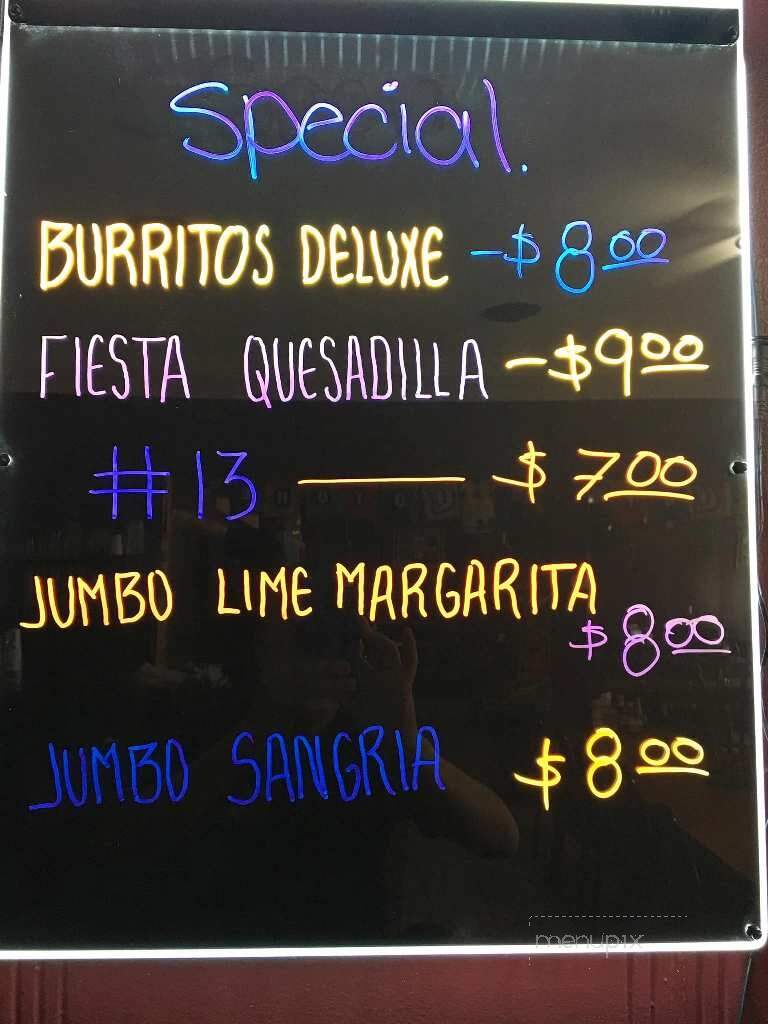 Special.
BURRITOS DELUXE - $8.00
FIESTA QUESADILLA - $9.00
#13 — $7.00
JUMBO LIME MARGARITA
$8.00
JUMBO SANGRIA $8.00
menupix